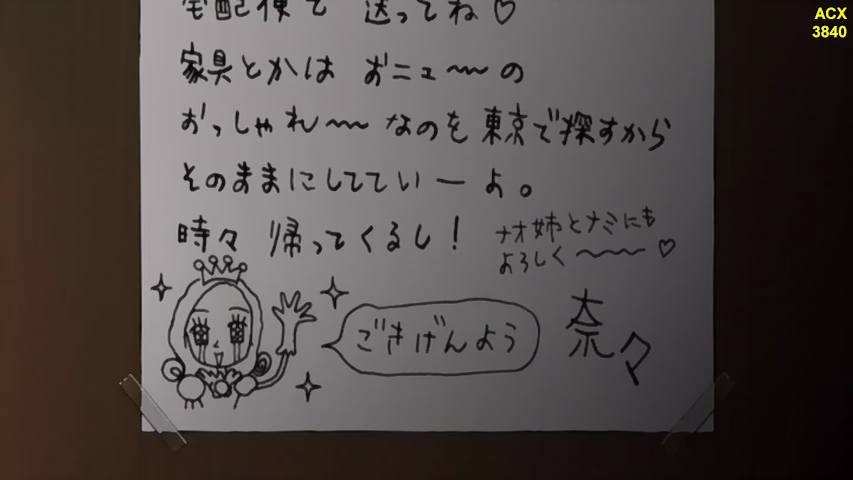 宅配便で 送ってね♡
家具とかは おニュ〜〜の
おっしゃれ〜〜なのを東京で探すから
そのままにしてていーよ。
時々 帰ってくるし！
ナオ姉とナミにも
よろしく〜〜〜♡
ごきげんよう
奈々
ACX
3840